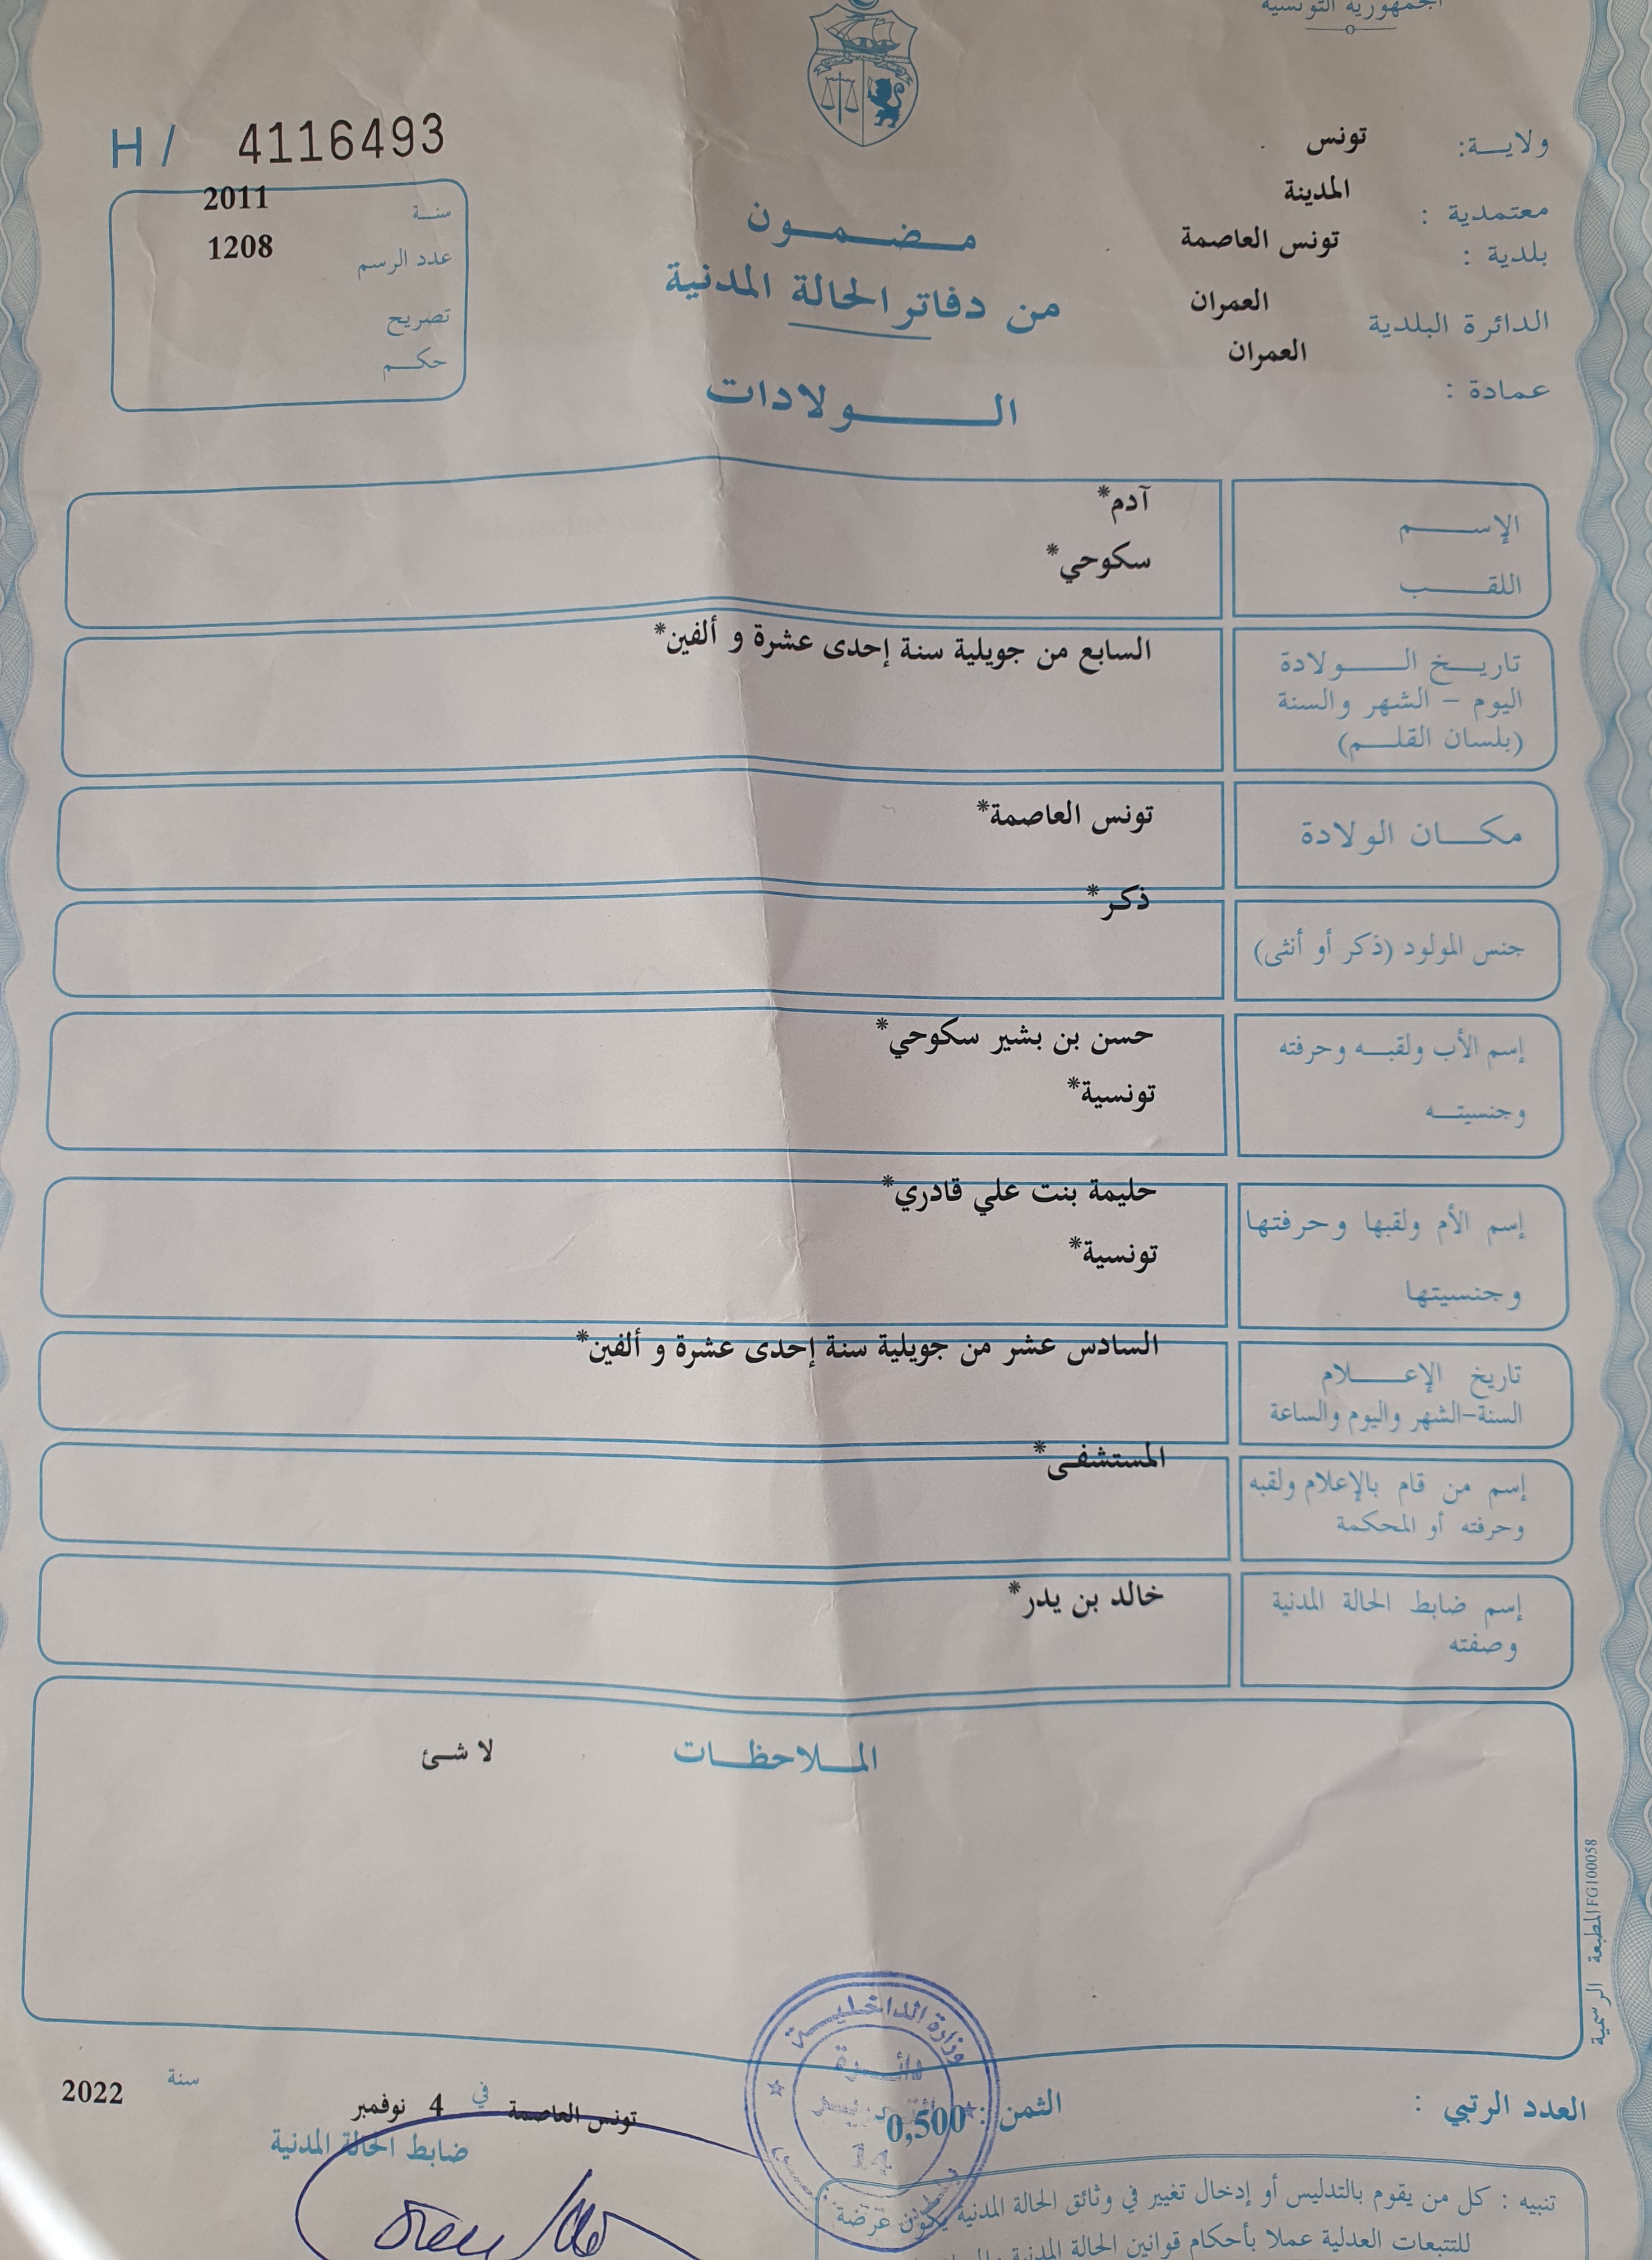 الجمهورية التونسية
ولايــة: تونس
معتمدية : المدينة
بلدية : تونس العاصمة
الدائرة البلدية العمران
عمادة : العمران
H / 4116493
سنة 2011
عدد الرسم 1208
تصريح
حكم
مضمون
من دفاتر الحالة المدنية
الولادات
الإسم آدم*
اللقب سكوحي*
تاريخ الولادة السابع من جويلية سنة إحدى عشرة و ألفين*
اليوم - الشهر والسنة
(بلسان القلم)
مكان الولادة تونس العاصمة*
جنس المولود (ذكر أو أنثى) ذكر*
إسم الأب ولقبه وحرفته حسن بن بشير سكوحي*
وجنسيته تونسية*
إسم الأم ولقبها وحرفتها حليمة بنت علي قادري*
وجنسيتها تونسية*
تاريخ الإعلام السادس عشر من جويلية سنة إحدى عشرة و ألفين*
السنة-الشهر واليوم والساعة
إسم من قام بالإعلام ولقبه المستشفى*
وحرفته أو المحكمة
إسم ضابط الحالة المدنية خالد بن يدر*
وصفته
الملاحظات لا شئ
المطبعة الرسمية FG100058
وزارة الداخلية
دائرة
14
العدد الرتبي :
الثمن : 0,500
تونس العاصمة في 4 نوفمبر سنة 2022
ضابط الحالة المدنية
تنبيه : كل من يقوم بالتدليس أو إدخال تغيير في وثائق الحالة المدنية يكون عرضة
للتتبعات العدلية عملا بأحكام قوانين الحالة المدنية